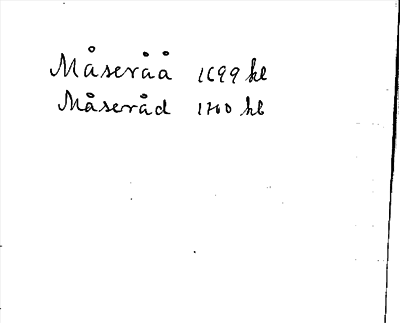 Måseråå 1699 kl
Måseråd 1700 kl